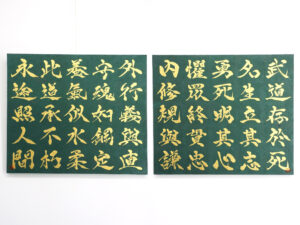 武道存於死
名生立其志
勇死明其心
懼眾終貫忠
内修規與謙
外行義與直
字魂如鋼定
養氣似水柔
此道承不朽
永途照人間